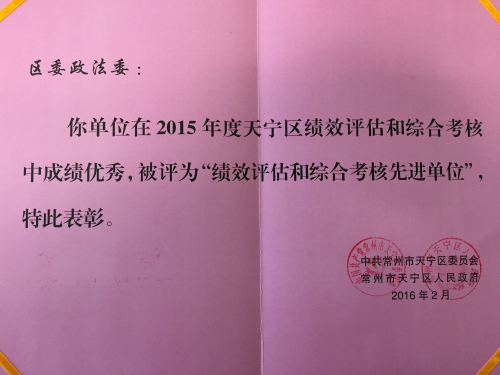 区委政法委：
你单位在2015年度天宁区绩效评估和综合考核
中成绩优秀，被评为“绩效评估和综合考核先进单位”，
特此表彰。
中共常州市天宁区委员会
常州市天宁区人民政府
2016年2月